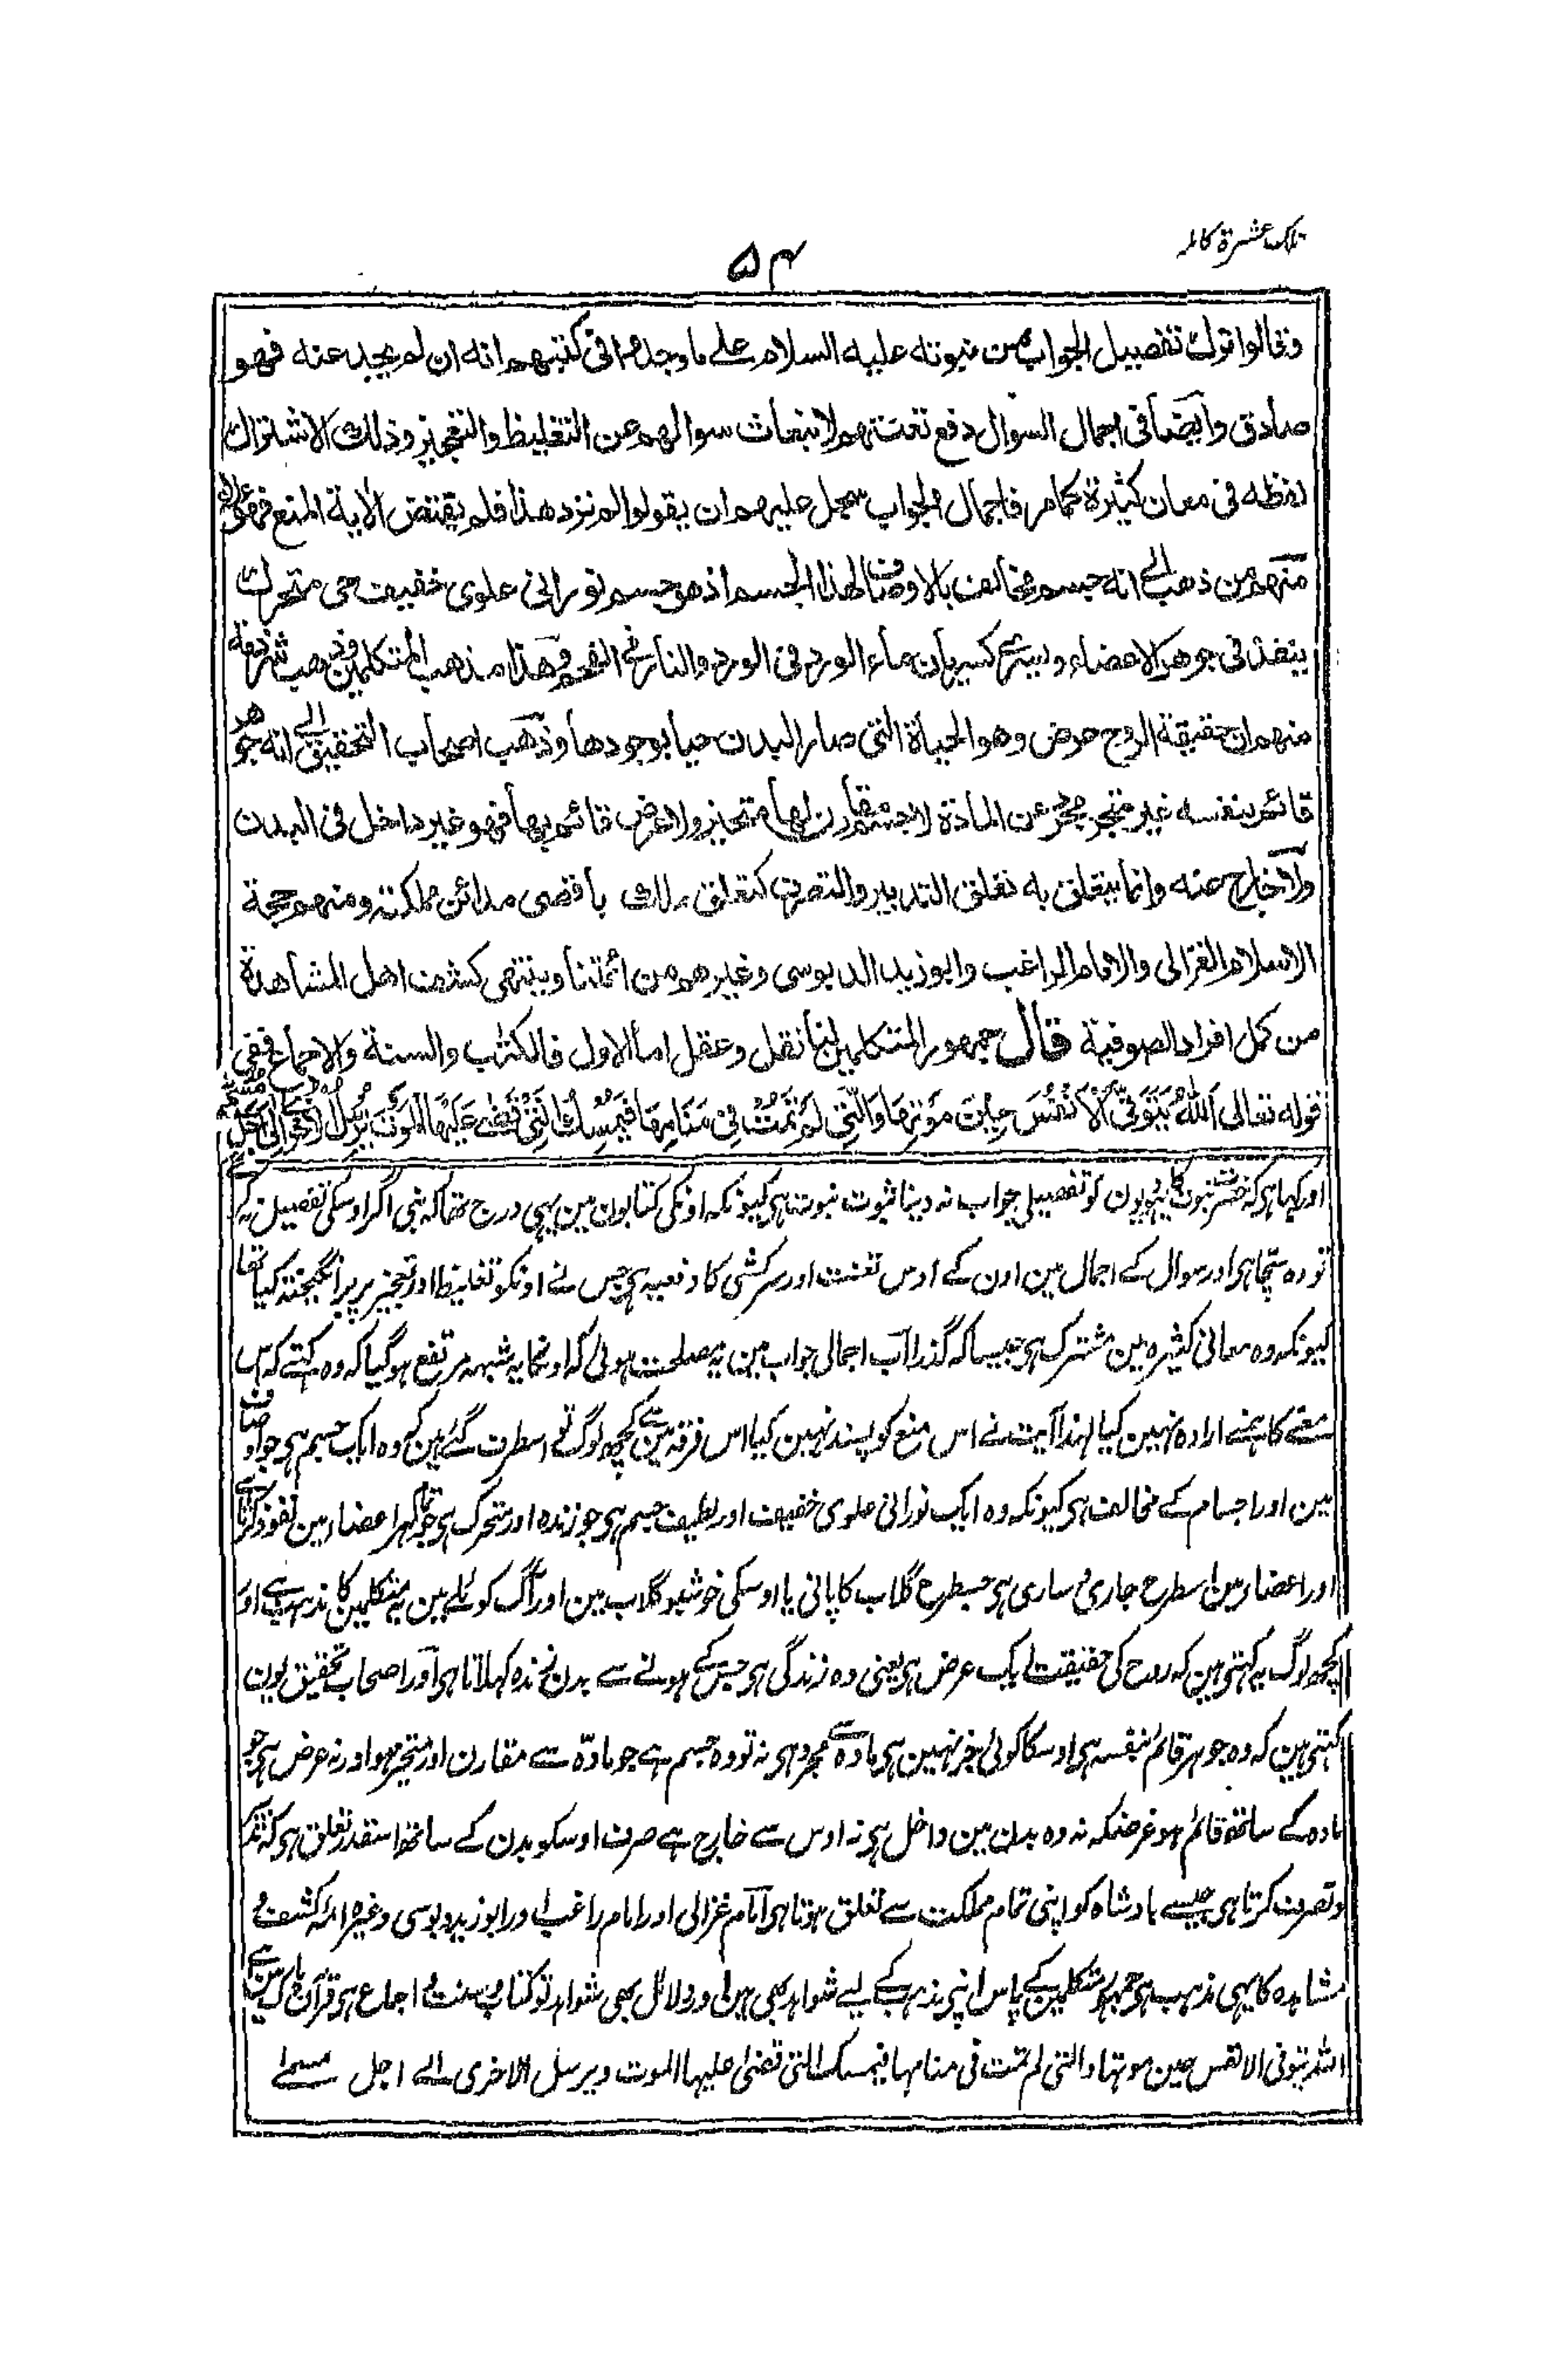 تلک عشرة کاملہ
۵۴
وقالوا ترك تفصيل الجواب من نبوته عليه السلام على ما وجدم فى كتبهم انه ان لم يجب عنه فهو
صادق وايضاً فى اجمال السوال دفع تعنتهم لانبعاث سوالهم عن التغليظ والتعجيز وذلك لاشتراك
لفظه فى معان كثيرة كما مر فاجمال الجواب سجل عليهم ان يقولوا لم نزد هذا فلم يقتض الاية المنع
منهم من ذهب الى انه جسم مخالف بالاوصاف لهذا الجسم اذ هو جسم نورانى علوى خفيف حى متحرك
ينفذ فى جوهر الاعضاء ويسرى كسريان ماء الورد فى الورد والنار فى الفحم وهذا مذهب المتكلمين وذهب شرذمة
منهم ان حقيقة الروح عرض وهو الحياة التى صار البدن حيا بوجودها وذهب اصحاب التحقيق الى انه جوهر
قائم بنفسه غير متجز مجرد عن المادة لا جسم مقارن لها متحيز ولا عرض قائم بها فهو غير داخل فى البدن
ولا خارج عنه وانما يتعلق به تعلق التدبير والتصرف كتعلق ملك باقصى مدائن مملكته ومنهم حجة
الاسلام الغزالى والامام الراغب وابو زيد الدبوسى وغيرهم من ائمتنا وينتهى كشف اهل المشاهدة
من كمل افراد الصوفية قال جمهور المتكلمين لنا نقل وعقل اما الاول فالكتٰب والسنة والاجماع ففى
قوله تعالى اَللّٰهُ يَتَوَفَّى الْاَنْفُسَ حِيْنَ مَوْتِهَا وَالَّتِىْ لَمْ تَمُتْ فِىْ مَنَامِهَا فَيُمْسِكُ الَّتِىْ قَضٰى عَلَيْهَا الْمَوْتَ وَيُرْسِلُ الْاُخْرٰى اِلٰى اَجَلٍ مُّسَمًّى
اور کہا ہی کہ یہودیون کو تفصیلی جواب نہ دینا ثبوت نبوت ہی کیونکہ اونکی کتابون مین یہی درج تھا کہ نبی اگر اوسکی تفصیل نہ کرے
تو وہ سچا ہی اور سوال کے اجمال مین اون کے اوس تعنت اور سرکشی کا دفعیہ ہی جس نے اونکو تغلیظ اور تعجیز پر برانگیختہ کیا تھا
کیونکہ وہ معانی کثیرہ مین مشترک ہی جیسا کہ گذرا اب اجمالی جواب مین یہ مصلحت ہوئی کہ اونکا یہ شبہہ مرتفع ہو گیا کہ وہ کہتے کہ اس
معنے کا ہمنے ارادہ نہین کیا لہذا آیت نے اس منع کو پسند نہین کیا اس فرقہ مین سے کچھ لوگ تو اسطرف گئے ہین کہ وہ ایک جسم ہی جو اوصاف
مین اور اجسام کے مخالف ہی کیونکہ وہ ایک نورانی علوی خفیف اور لطیف جسم ہی جو زندہ اور متحرک ہی جو جوہر اعضاء مین نفوذ کرتا ہے
اور اعضاء مین اسطرح جاری و ساری ہی جسطرح گلاب کا پانی یا اوسکی خوشبو گلاب مین اور آگ کوئلے مین یہ متکلمین کا مذہب ہے اور
کچھ لوگ یہ کہتی ہین کہ روح کی حقیقت ایک عرض ہی یعنی وہ زندگی ہی جس کے ہونے سے بدن زندہ کہلاتا ہی اور اصحاب تحقیق یون
کہتی ہین کہ وہ جوہر قائم بنفسہ ہی اوسکا کوئی جز نہین ہی مادہ سے مجرد ہی نہ تو وہ جسم ہے جو مادّہ سے مقارن اور متحیز ہو اور نہ عرض ہی جو
مادہ کے ساتھ قائم ہو غرضکہ نہ وہ بدن مین داخل ہی نہ اوس سے خارج ہے صرف اوسکو بدن کے ساتھ اسقدر تعلق ہی کہ تدبیر
و تصرف کرتا ہی جیسے بادشاہ کو اپنی تمام مملکت سے تعلق ہوتا ہی امام غزالی اور امام راغب اور ابو زید دبوسی وغیرہ ائمہ کشف و
مشاہدہ کا یہی مذہب ہی جمہور متکلمین کے پاس اپنی مذہب کے لیے شواہد بھی ہین اور دلائل بھی شواہد تو کتاب و سنت و اجماع ہی قرآن پاک مین ہے
اللہ یتوفی الانفس حین موتہا والتی لم تمت فی منامہا فیمسک التی قضیٰ علیہا الموت ویرسل الاخری الے اجل مسمے